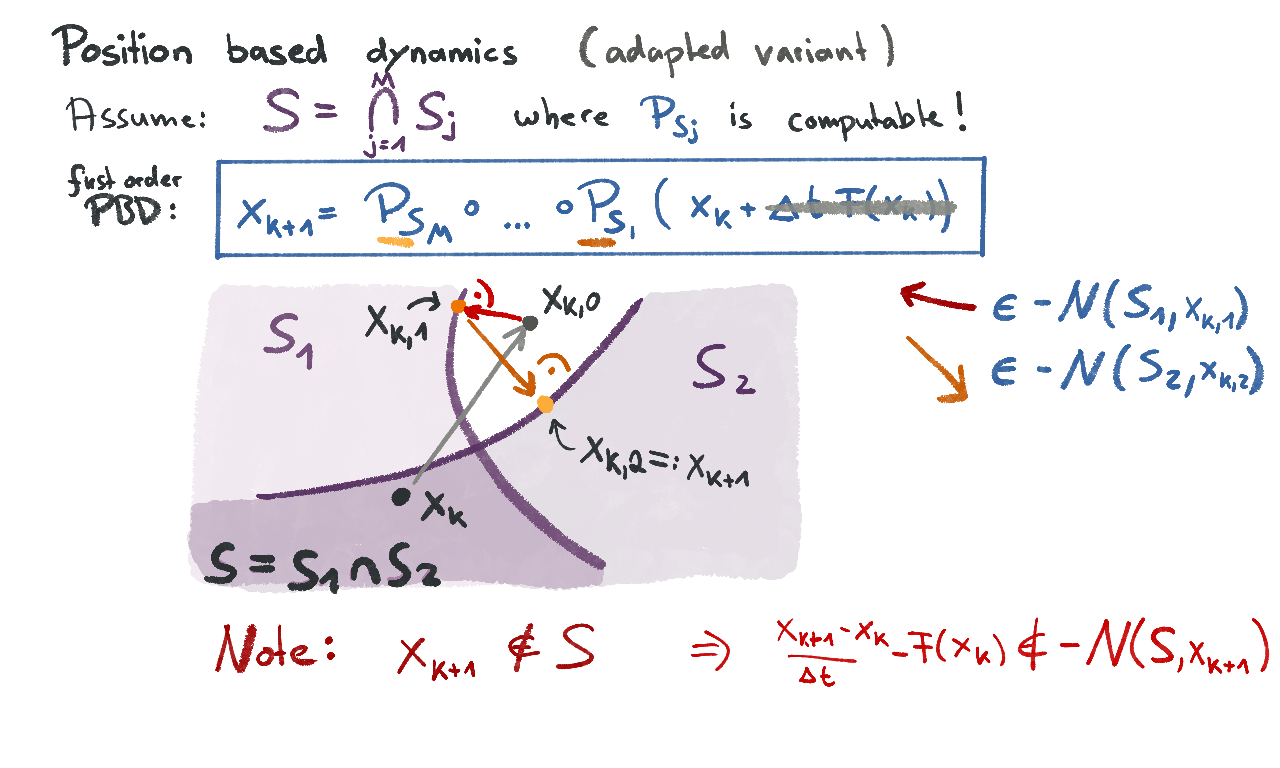 Position based dynamics (adapted variant)
Assume: S = ⋂_{j=1}^{M} S_j where P_{S_j} is computable!
first order
PBD: x_{k+1} = P_{S_M} ∘ ... ∘ P_{S_1} ( x_k + Δt F(x_k))
x_{k,0}
x_{k,1}
S_1
S_2
∈ - N(S_1, x_{k,1})
∈ - N(S_2, x_{k,2})
x_{k,2} =: x_{k+1}
x_k
S = S_1 ∩ S_2
Note: x_{k+1} ∉ S ⇒ \frac{x_{k+1} - x_k}{Δt} - F(x_k) ∉ - N(S, x_{k+1})